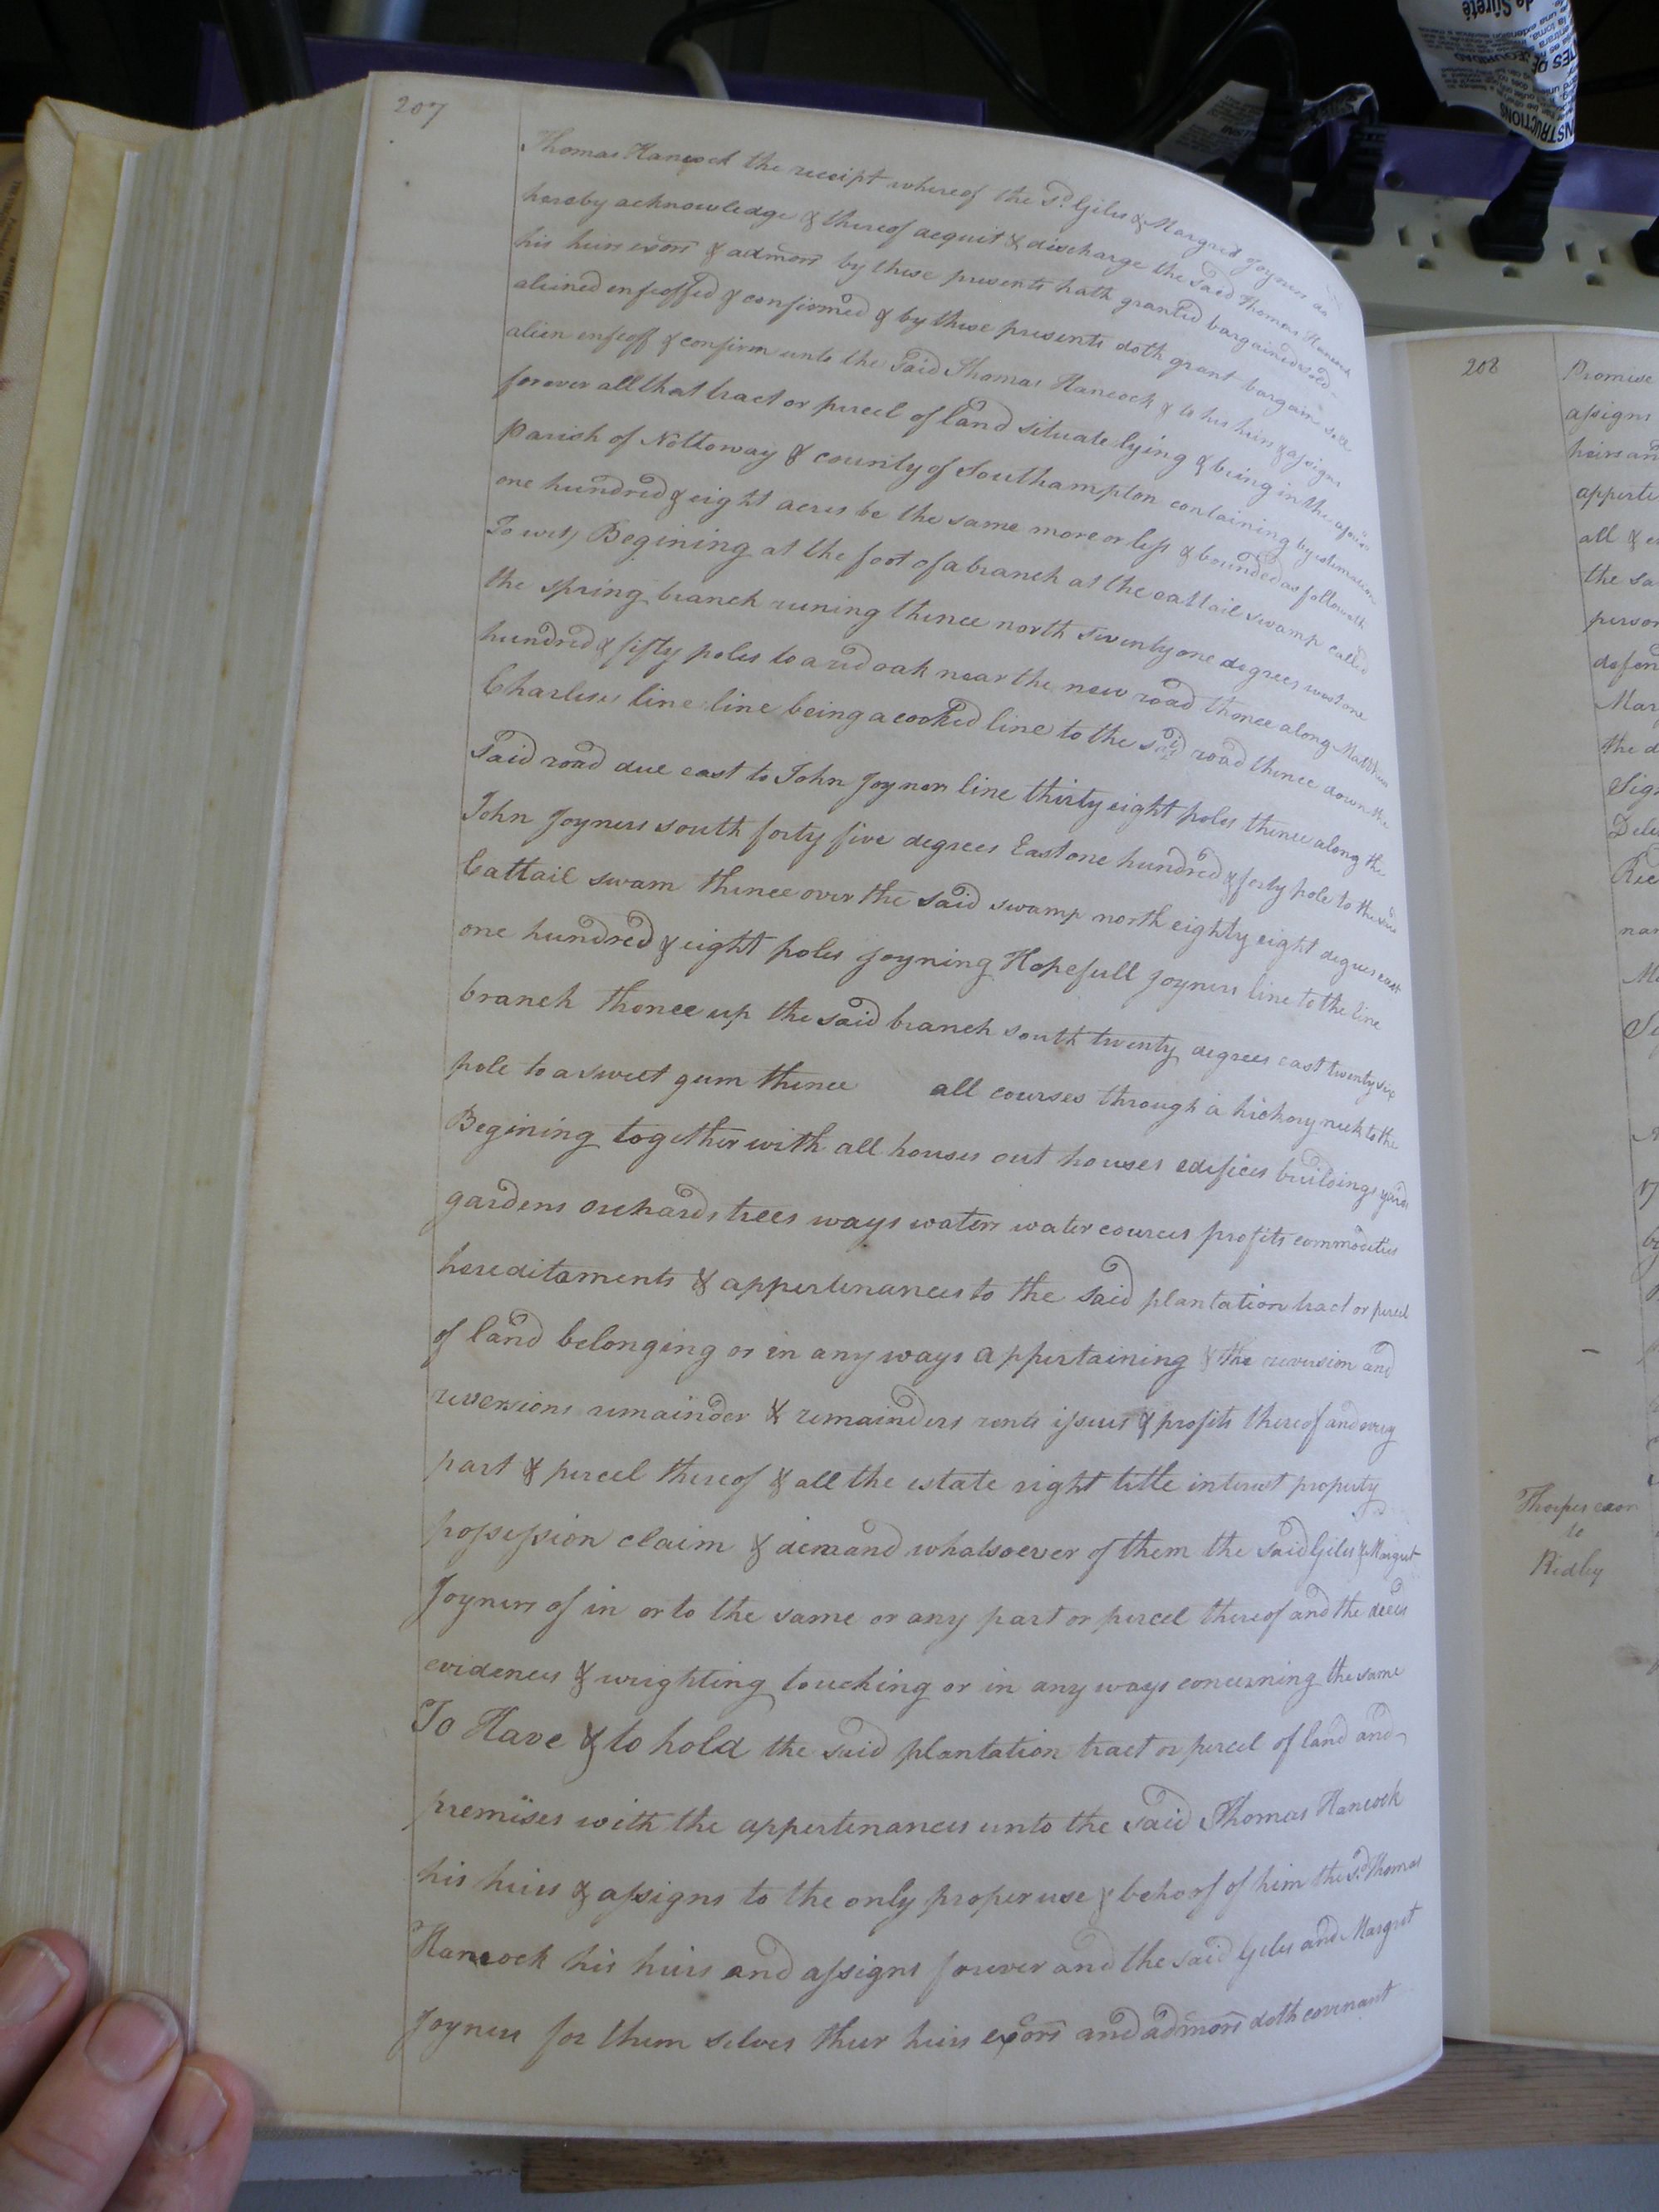 207
Thomas Hancock the receipt whereof the Sd. Giles & Margret Joyners do
hereby acknowledge & thereof acquit & discharge the said Thomas Hancock
his heirs exors & admors by these presents hath granted bargained sold
aliened enfeoffed & confirmed & by these presents doth grant bargain sell
alien enfeoff & confirm unto the Said Thomas Hancock & to his heirs & assigns
forever all that tract or percel of land situate lying & being in the
parish of Nottoway & county of Southampton containing by estimation
one hundred & eight acres be the same more or less & bounded as followeth
To wit, Begining at the foot of a branch at the cattail swamp called
the spring branch runing thence north seventy one degrees west one
hundred & fifty poles to a red oak near the new road thence along Matthew
Charleses line line being a cooked line to the sd road thence down the
Said road due east to John Joyners line thirty eight poles thence along the
John Joyners south forty five degrees East one hundred & forty pole to the said
Cattail swam thence over the said swamp north eighty eight degrees east
one hundred & eight poles joyning Hopefull Joyners line to the line
branch thence up the said branch south twenty degrees east twenty six
pole to a sweet gum thence all courses through a hickory neck to the
Begining together with all houses out houses edifices buildings yards
gardens orchards trees ways waters water cources profits commodities
hereditaments & appertenances to the said plantation tract or percel
of land belonging or in any ways appertaining & the reversion and
reversions remainder & remainders rents issues & profits thereof and every
part & percel thereof & all the estate right title interest property
possession claim & demand whatsoever of them the said Giles & Margret
Joyners of in or to the same or any part or percel thereof and the deeds
evidences & wrighting touching or in any ways concerning the same
To Have & to hold the said plantation tract or percel of land and
premises with the appertenances unto the said Thomas Hancock
his heirs & assigns to the only proper use & behoof of him the sd. Thomas
Hancock his heirs and assigns forever and the said Giles and Margret
Joyners for them selves their heirs exors and admors doth covenant
208
Promise
assigns
heirs an
apperte
all & e
the sa
person
defen
Mar
the d
Sign
Deli
Rec
nam
Thorpes exors
to
Ridley
de Sûreté
INSTRUCTIONS